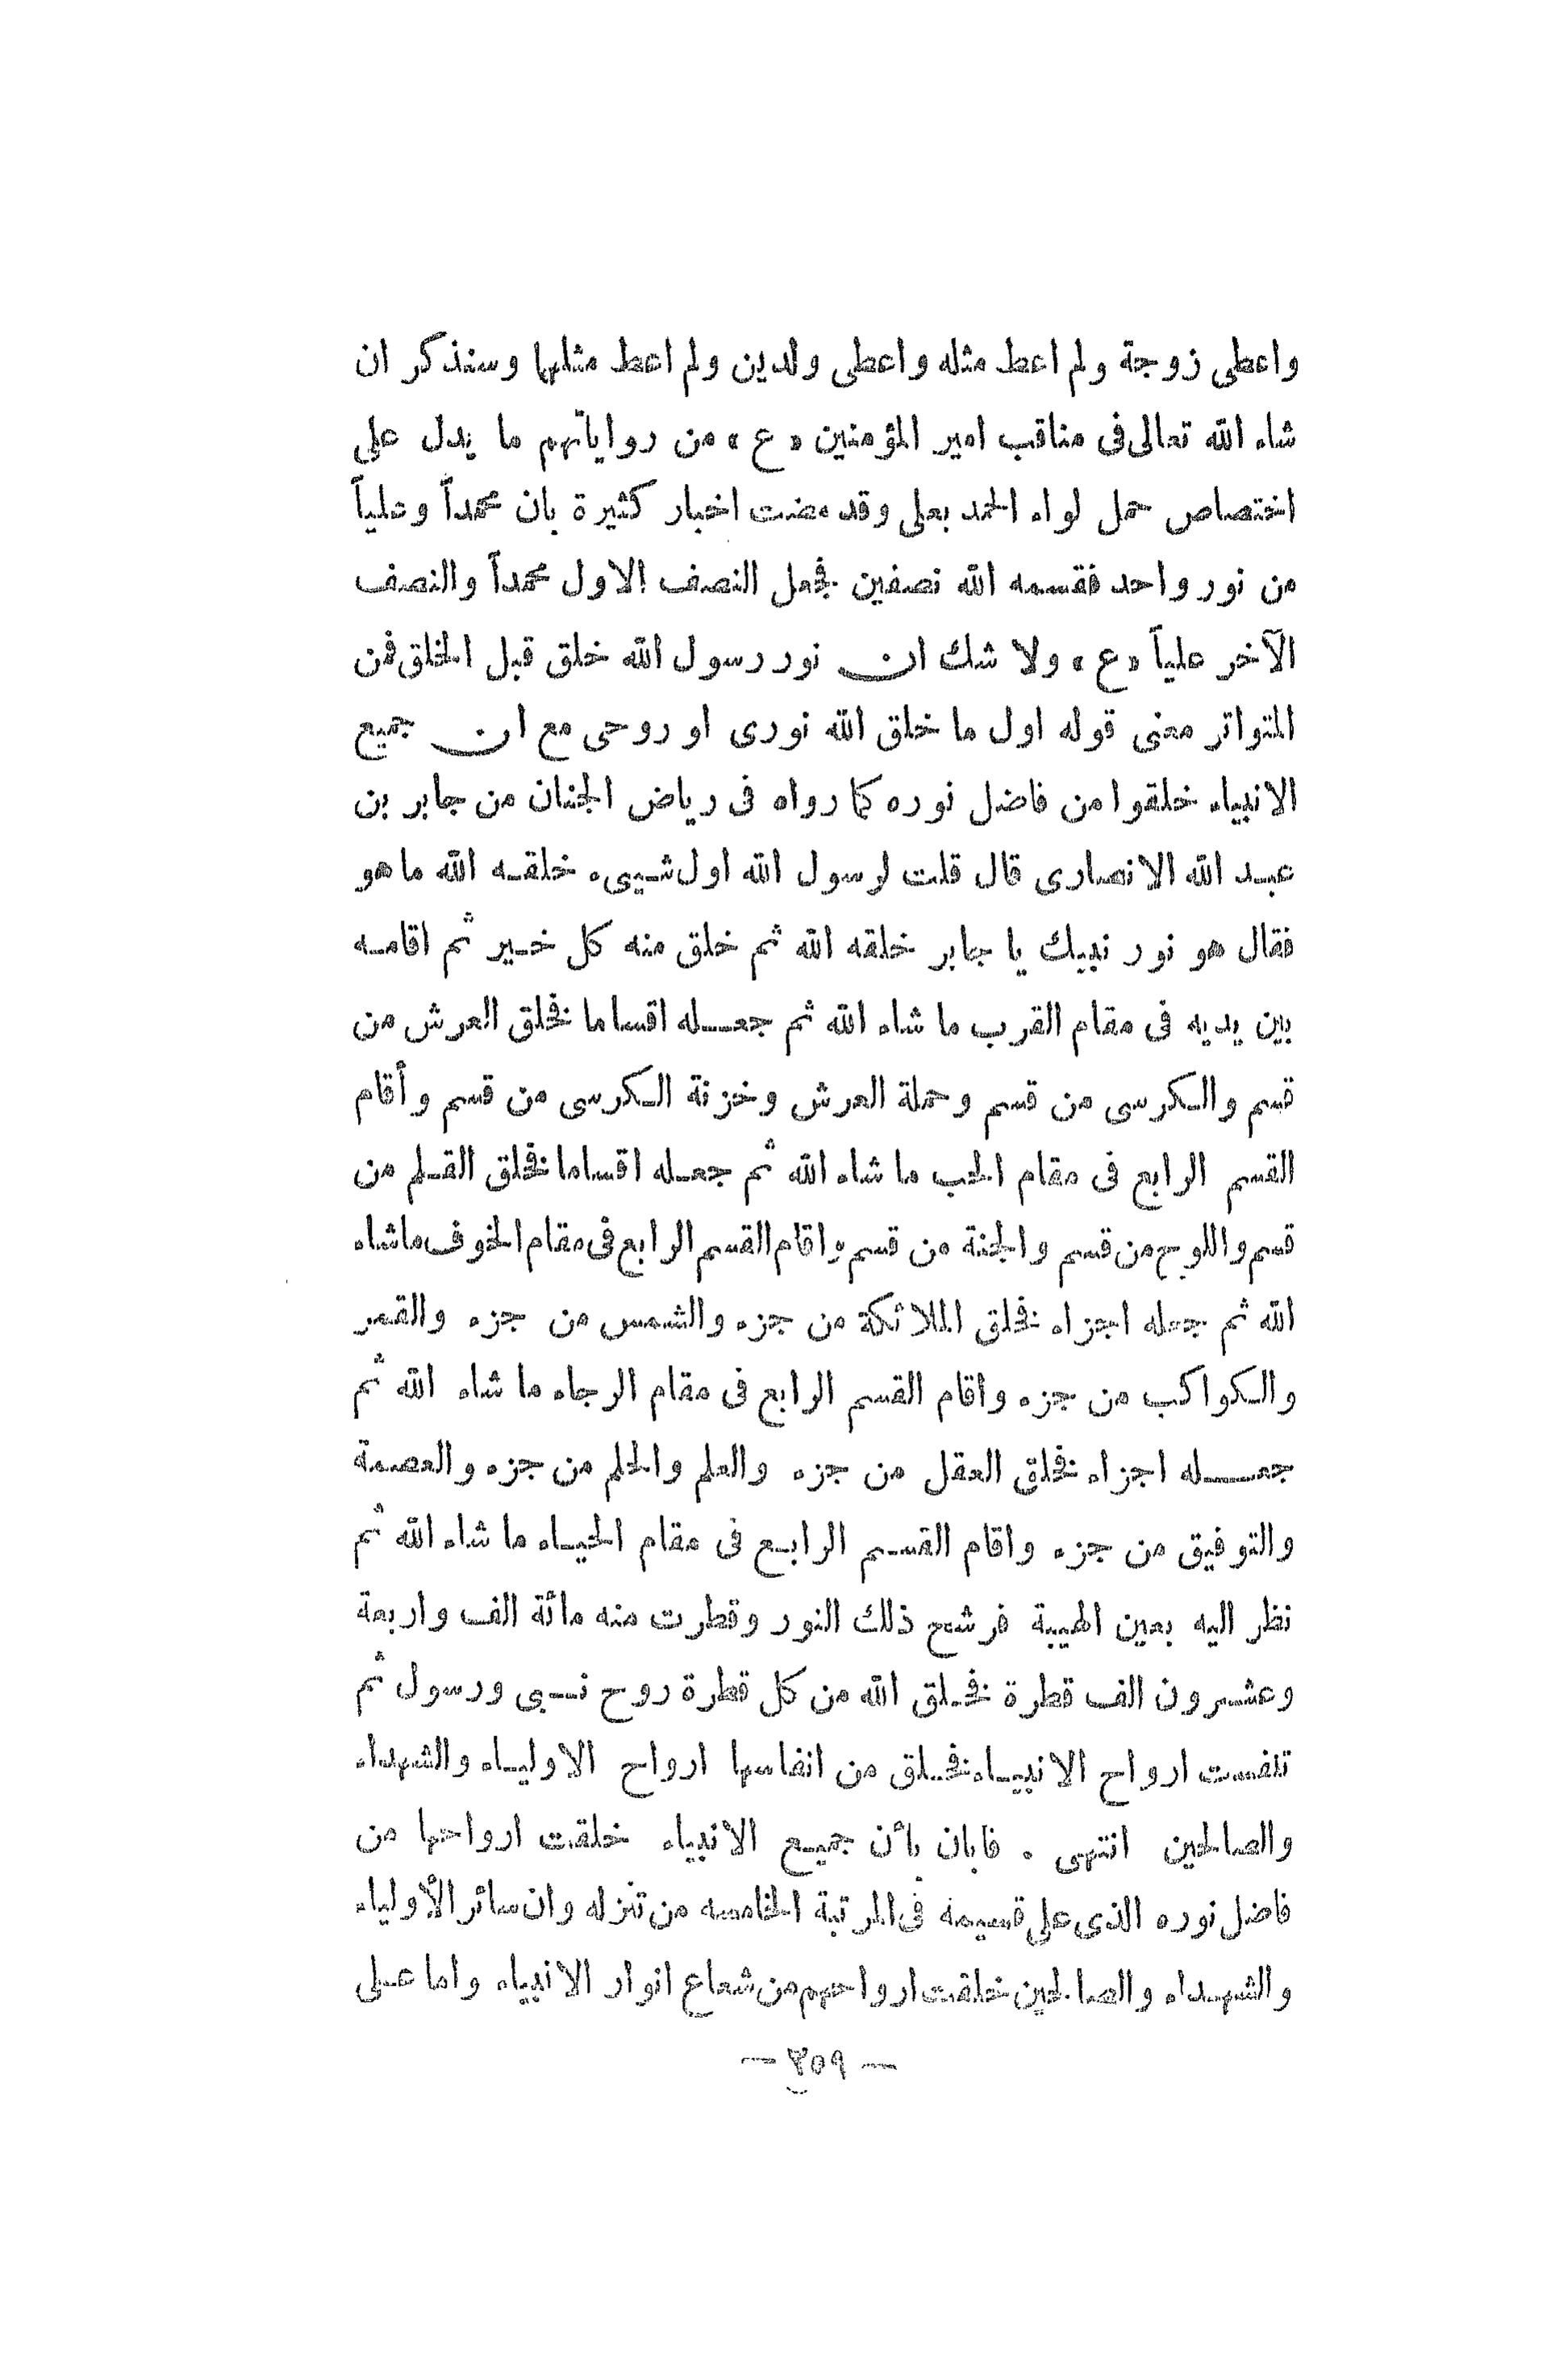 واعطى زوجة ولم اعط مثله واعطى ولدين ولم اعط مثلها وسنذكر ان
شاء الله تعالى فى مناقب امير المؤمنين «ع» من رواياتهم ما يدل على
اختصاص حمل لواء الحمد بعلى وقد مضت اخبار كثيرة بان محمداً وعلياً
من نور واحد فقسمه الله نصفين فجعل النصف الاول محمداً والنصف
الآخر علياً «ع» ولا شك ان نور رسول الله خلق قبل الخلق فمن
المتواتر معنى قوله اول ما خلق الله نورى او روحى مع ان جميع
الانبياء خلقوا من فاضل نوره كما رواه فى رياض الجنان من جابر بن
عبد الله الانصارى قال قلت لرسول الله اول شيىء خلقه الله ما هو
فقال هو نور نبيك يا جابر خلقه الله ثم خلق منه كل خير ثم اقامه
بين يديه فى مقام القرب ما شاء الله ثم جعله اقساما فخلق العرش من
قسم والكرسى من قسم وحملة العرش وخزنة الكرسى من قسم وأقام
القسم الرابع فى مقام الحب ما شاء الله ثم جعله اقساما فخلق القلم من
قسم واللوح من قسم والجنة من قسم واقام القسم الرابع فى مقام الخوف ماشاء
الله ثم جعله اجزاء فخلق الملائكة من جزء والشمس من جزء والقمر
والكواكب من جزء واقام القسم الرابع فى مقام الرجاء ما شاء الله ثم
جعله اجزاء فخلق العقل من جزء والعلم والحلم من جزء والعصمة
والتوفيق من جزء واقام القسم الرابع فى مقام الحياء ما شاء الله ثم
نظر اليه بعين الهيبة فرشح ذلك النور وقطرت منه مائة الف واربعة
وعشرون الف قطرة فخلق الله من كل قطرة روح نبى ورسول ثم
تنفست ارواح الانبياء فخلق من انفاسها ارواح الاولياء والشهداء
والصالحين انتهى . فابان بأن جميع الانبياء خلقت ارواحها من
فاضل نوره الذى على قسيمه فى المرتبة الخامسه من تنزله وان سائر الأولياء
والشهداء والصالحين خلقت ارواحهم من شعاع انوار الانبياء واما على
— ٣٥٩ —